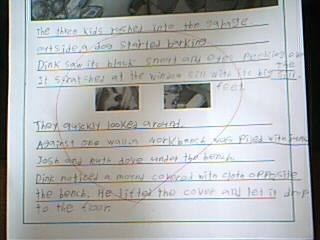 The three kids rushed into the garage
outside a dog started barking.
Dink saw its black snout and eyes peeking over
The
It scratched at the window sill with its big sill.
feet
They quickly looked around.
Against one wall a workbench was piled with
Josh and Ruth dove under the bench.
Dink noticed a mound covered with cloth opposite
the bench. He lifted the cover and let it drop
to the floor.